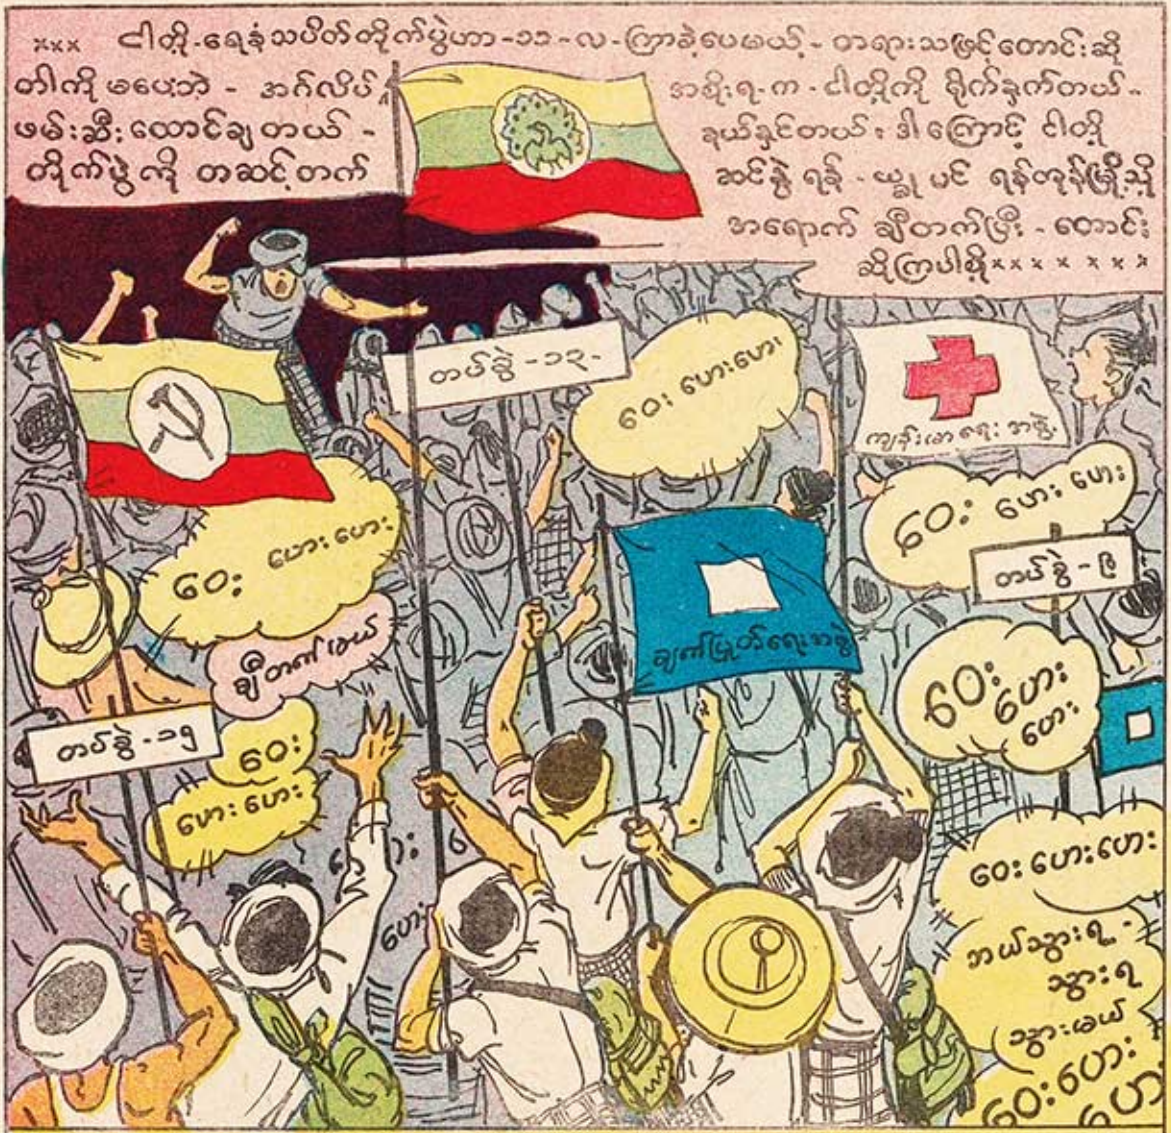 ××× ငါတို့-ရေနံသပိတ်တိုက်ပွဲဟာ-၁၁-လ-ကြာခဲ့ပေမယ့်- တရားသဖြင့်တောင်းဆို
တါကို မပေးဘဲ - အင်္ဂလိပ် အစိုးရ-က-ငါတို့ကို ရိုက်နှက်တယ်-
ဖမ်းဆီး ထောင်ချတယ် - နှယ်နှင်တယ်၊ ဒါကြောင့် ငါတို့
တိုက်ပွဲကို တဆင့်တက် ဆင်နွှဲရန်-ယ္ခုပင် ရန်ကုန်မြို့သို့
အရောက် ချီတက်ပြီး-တောင်း
ဆိုကြပါစို့××××××××
တပ်ခွဲ-၁၃-
ဝေး ဟေးဟေး
ကျန်းမာရေး အဖွဲ့
ဝေး ဟေးဟေး
ဝေး ဟေး ဟေး
တပ်ခွဲ-၉
ချက်ပြုတ်ရေးအဖွဲ့
ချီတက်မယ်
ဝေး ဟေး
ဟေး
တပ်ခွဲ-၁၅
ဝေး
ဟေးဟေး
ဟေး
ဝေး ဟေးဟေး
ဘယ်သွားရ-
သွားရ
သွားမယ်
ဝေးဟေး